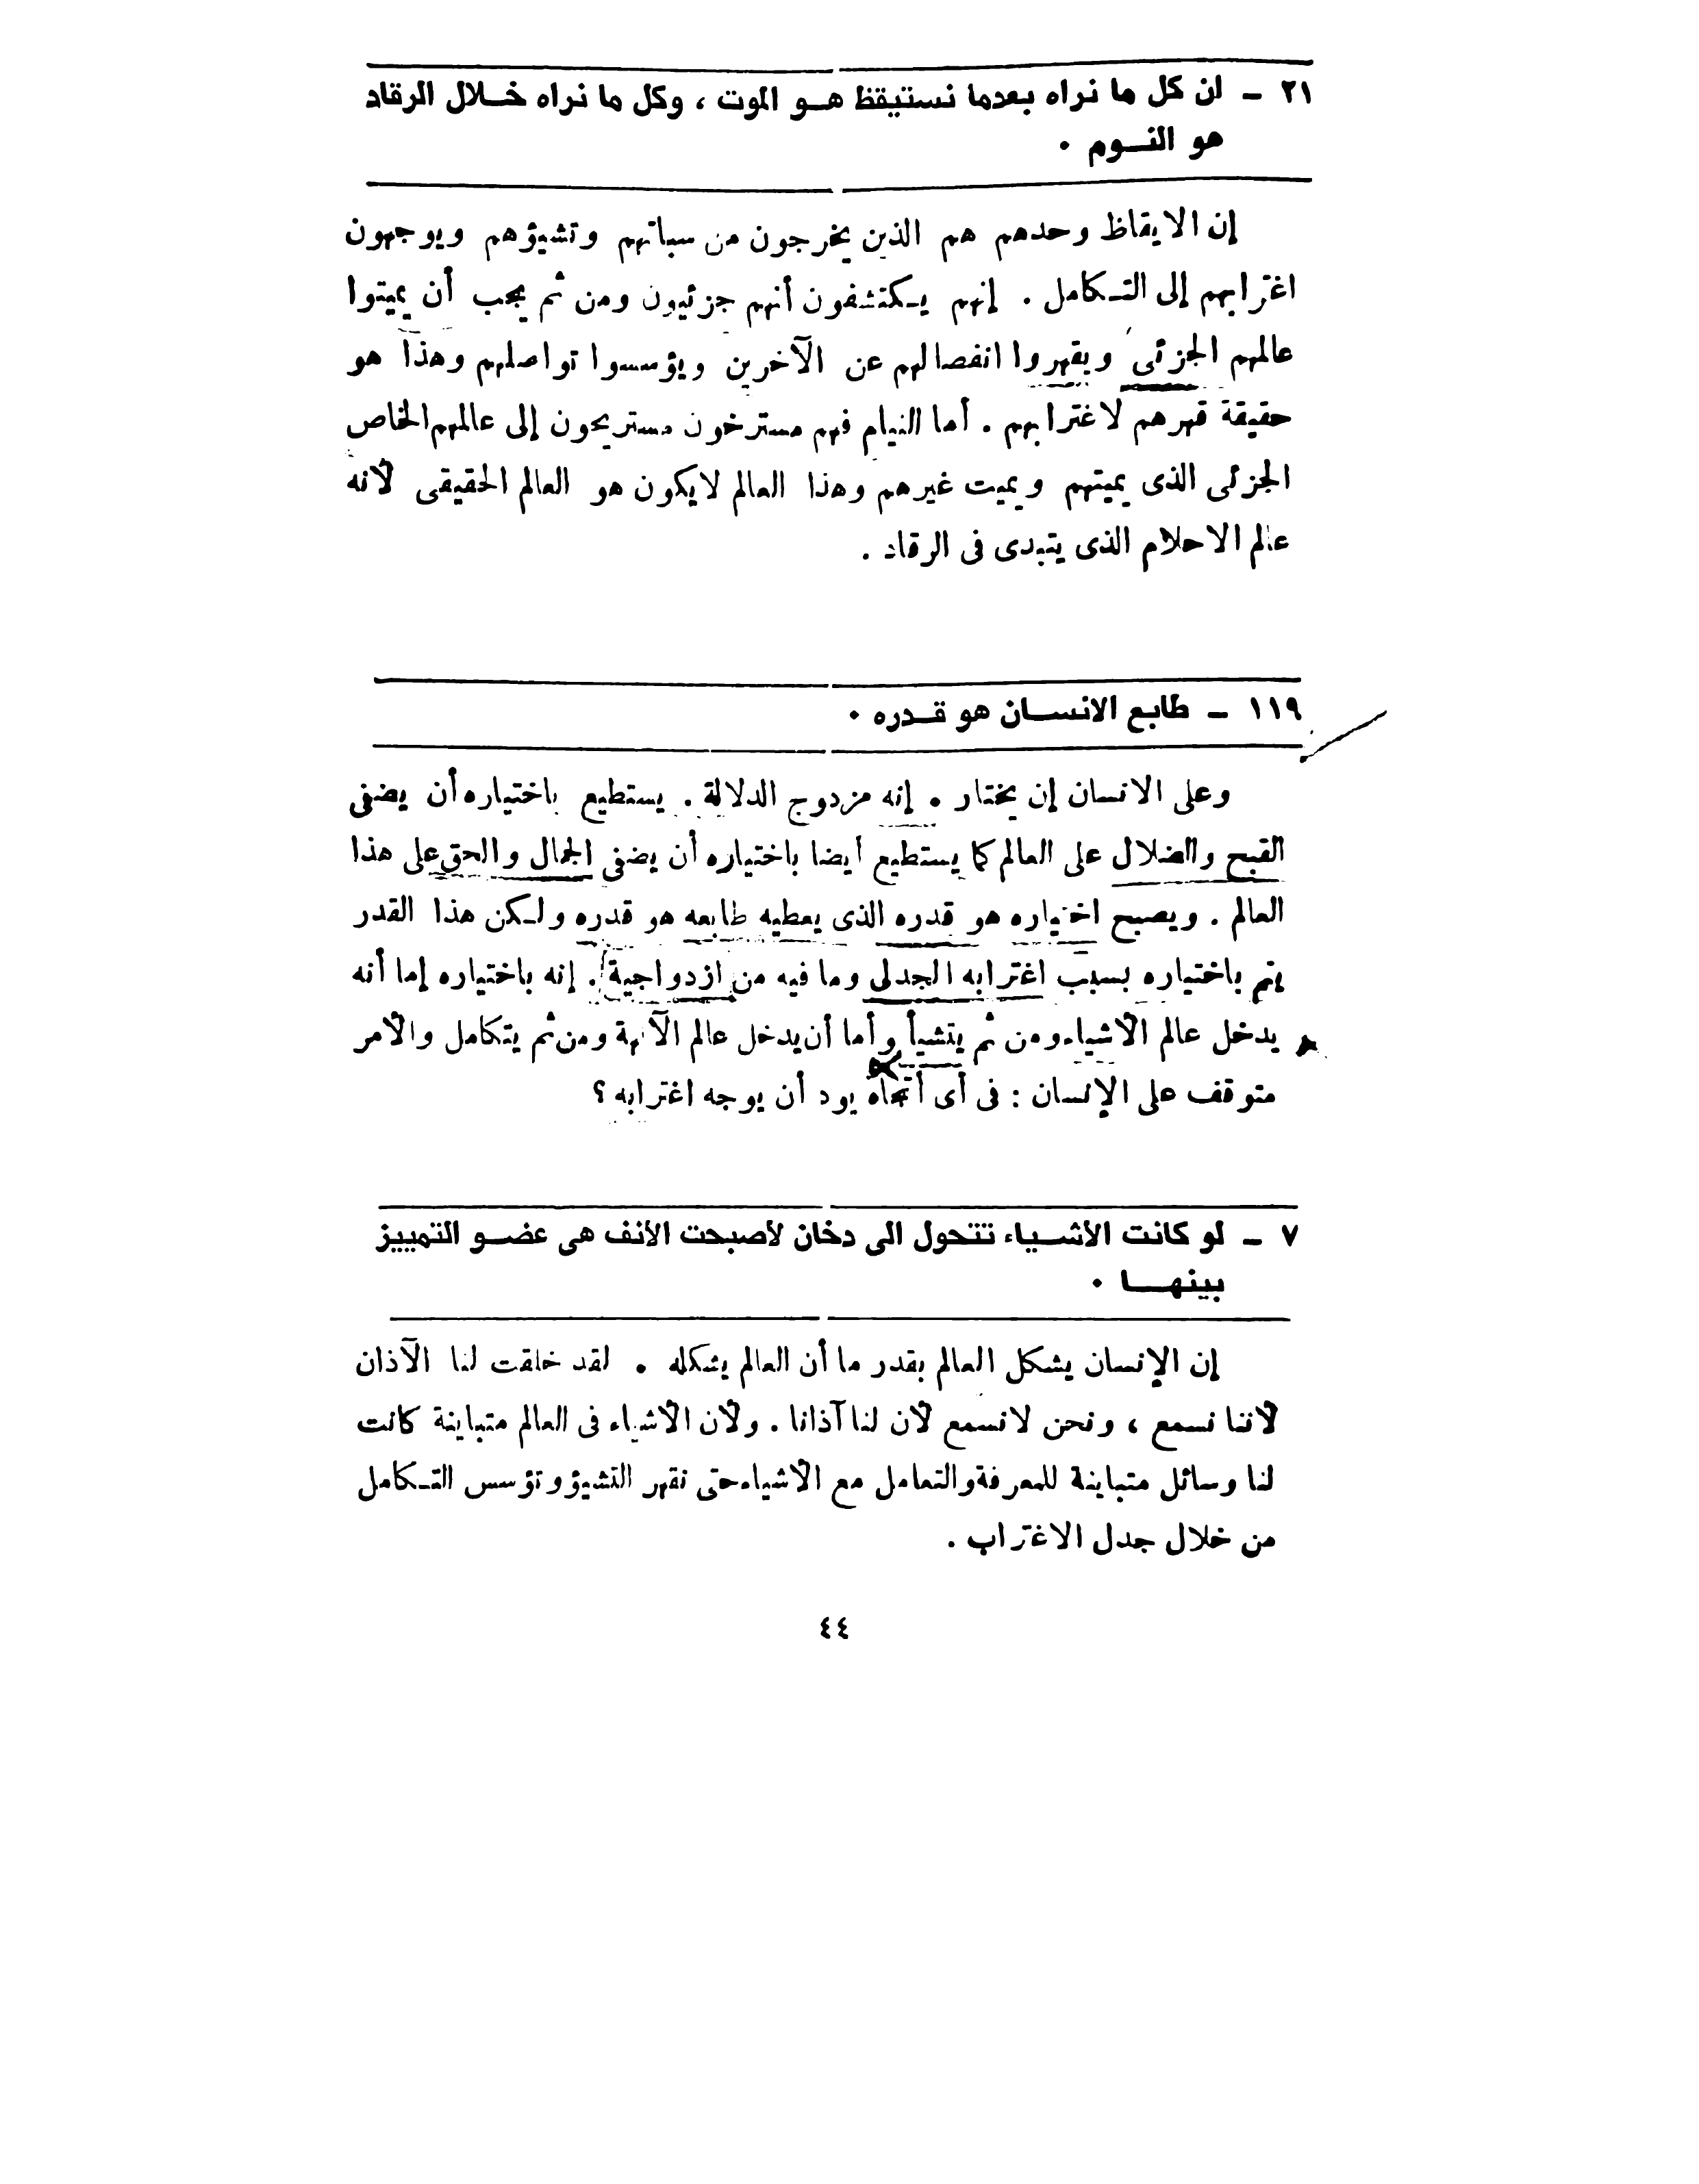 ٢١ - ان كل ما نراه بعدما نستيقظ هو الموت ، وكل ما نراه خلال الرقاد
هو النوم .
إن الايقاظ وحدهم هم الذين يخرجون من سباتهم وتشيؤهم ويوجهون
اغترابهم إلى التكامل . إنهم يكتشفون أنهم جزئيون ومن ثم يجب أن يميتوا
عالمهم الجزئى ويقهروا انفصالهم عن الآخرين ويؤسسوا تواصلهم وهذا هو
حقيقة قهرهم لاغترابهم . أما النيام فهم مسترخون مستريحون إلى عالمهم الخاص
الجزئى الذى يميتهم ويميت غيرهم وهذا العالم لايكون هو العالم الحقيقى لأنه
عالم الاحلام الذى يتبدى فى الرقاد .
١١٩ - طابع الانسان هو قدره .
وعلى الانسان إن يختار . إنه مزدوج الدلالة . يستطيع باختياره أن يضفى
القبح والضلال على العالم كما يستطيع أيضا باختياره أن يضفى الجمال والحق على هذا
العالم . ويصبح اختياره هو قدره الذى يعطيه طابعه هو قدره ولكن هذا القدر
يتم باختياره بسبب اغترابه الجدلى وما فيه من ازدواجية . إنه باختياره إما أنه
يدخل عالم الأشياء ومن ثم يتشيأ وأما أن يدخل عالم الآلهة ومن ثم يتكامل والأمر
متوقف على الإنسان : فى أى أتجاه يود أن يوجه اغترابه ؟
٧ - لو كانت الأشياء تتحول الى دخان لأصبحت الأنف هى عضو التمييز
بينها .
إن الإنسان يشكل العالم بقدر ما أن العالم يشكله . لقد خلقت لنا الآذان
لأننا نسمع ، ونحن لانسمع لأن لنا آذانا . ولأن الأشياء فى العالم متباينة كانت
لنا وسائل متباينة للمعرفة والتعامل مع الأشياء حتى نقهر التشيؤ ونؤسس التكامل
من خلال جدل الاغتراب .
٤٤